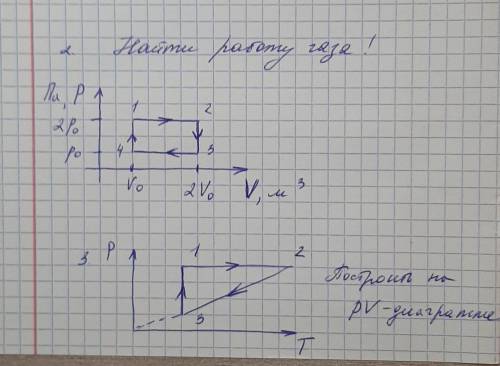 2. Найти работу газа!
Па, P
1 2
2P₀
P₀ 4 3
V₀ 2V₀ V, м³
3 P 1 2
Построить на
PV-диаграмме
3
T